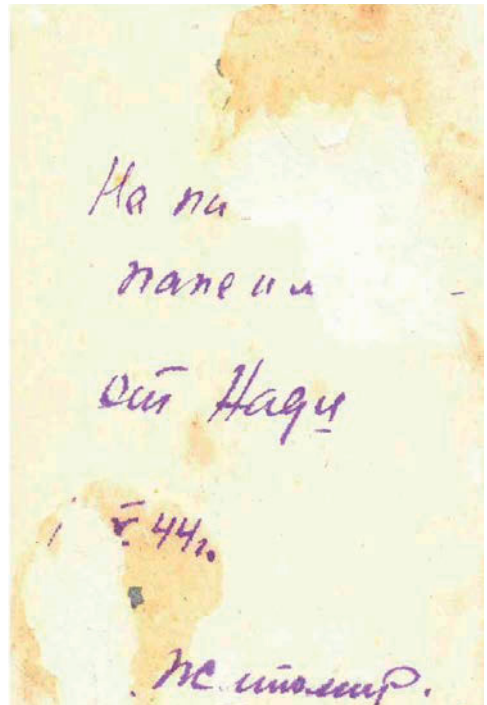 На
папе и
от Нади
V. 44г.
Житомир.